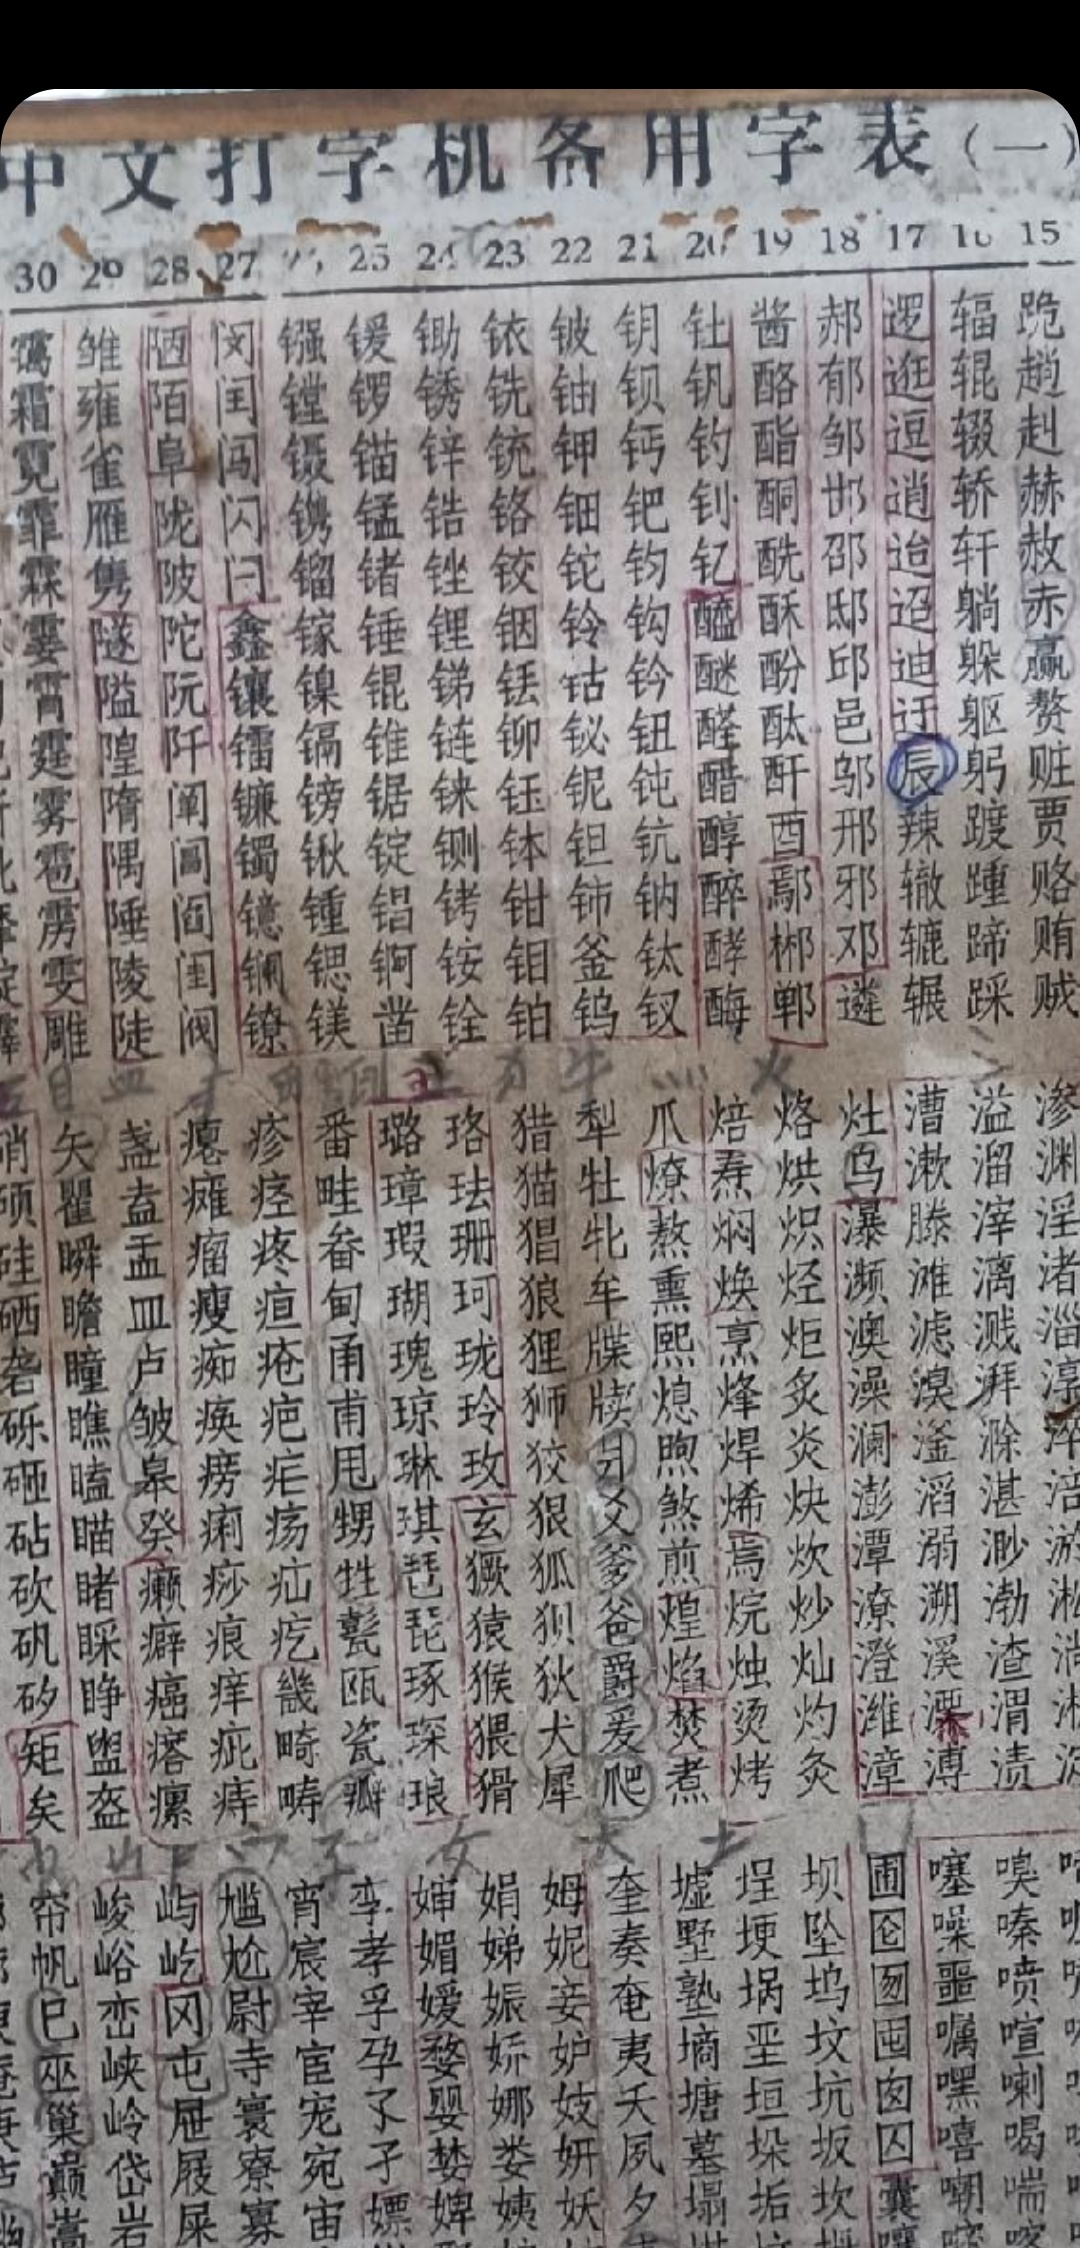 中文打字机备用字表(一)
30 29 28 27 25 24 23 22 21 20 19 18 17 16 15
跪趟赳赫赦赤赢赘赃贾赂贿贼
辐辊辍轿轩躺躲躯躬踱踵蹄踩
逻逛逗逍迨迢迪迂辰辣辙辘辗
郝郁邹邯邵邸邱邑邬邢邪邓遴
酱酪酯酮酰酥酚酞酐酉鄢郴郸
钍钒钓钊钇醯醚醛醋醇醉酵酶
钥钡钙钯钧钩钤钮钝钪钠钛钗
铍铀钾钿铊铃钴铋铌钽铈釜钨
铱铣铳铬铰铟铥铆钰钵钳钼铂
锄锈锌锆锉锂锑链铼铡铐铵铨
锾锣锚锰锗锤锟锥锯锭锕凿
镪镗镊镌镏镓镍镉镑锹锺锶镁
闵闰闯闪闩鑫镶镭镰镯镱镧镣
陋陌阜陇陂陀阮阡阐阖阎闺阀
雏雍雀雁隽隧隘隍隋隅陲陵陡
霭霜霓霏霖霎霄霆雾雹雳雯雕
火
牛
渗渊淫渚淄淳淬涪游淞淌
溢溜滓漓溅湃滁湛渺渤渣渭渍
漕漱滕滩滤溴滏滔溺溯溪溧溥
灶乌瀑濒澳澡澜澎潭潦澄潍漳
烙烘炽烃炬炙炎炔炊炒灿灼灸
焙焘焖焕烹烽焊烯焉烷烛烫烤
爪燎熬熏熙熄煦煞煎煌焰焚煮
犁牡牝牟牒牍爿爻爹爸爵爰爬
猎猫猖狼狸狮狡狠狐狈狄犬犀
珞珐珊珂珑玲玫玄獗猿猴猥猾
璐璋瑕瑚瑰琼琳琪琶琵琢琛琅
番畦畚甸甬甫甩甥甡甏瓯瓷瓣
疹痉疼疸疮疤疟疡疝疙畿畸畴
瘫瘤瘦痴痪痨痢痧痕痒疵痔
盏盍盂皿卢皱皋癸癞癖癌瘩瘰
矢瞿瞬瞻瞳瞧瞌瞄睹睬睁盥盔
硝硕硅硒砾砸砧砍矾矽矩矣
土
大
女
子
嗅嗪喷喧喇喝喘
噻噪噩嘱嘿嘻嘲
圃囵囫囤囱囚囊
坝坠坞坟坑坂坎
埕埂埚垩垣垛垢
墟墅塾墒塘墓塌
奎奏奄夷夭夙夕
姆妮妾妒妓妍妖
娟娣娠娇娜娄姨
婶媚嫒婺婴婪婢
孪孝孚孕孓孑嫖
宵宸宰宦宠宛宙
尴尬尉寺寰寮寡
屿屹冈屯屉屐屎
峻峪峦峡岭岱岩
帘帆巳巫巢巅嵩